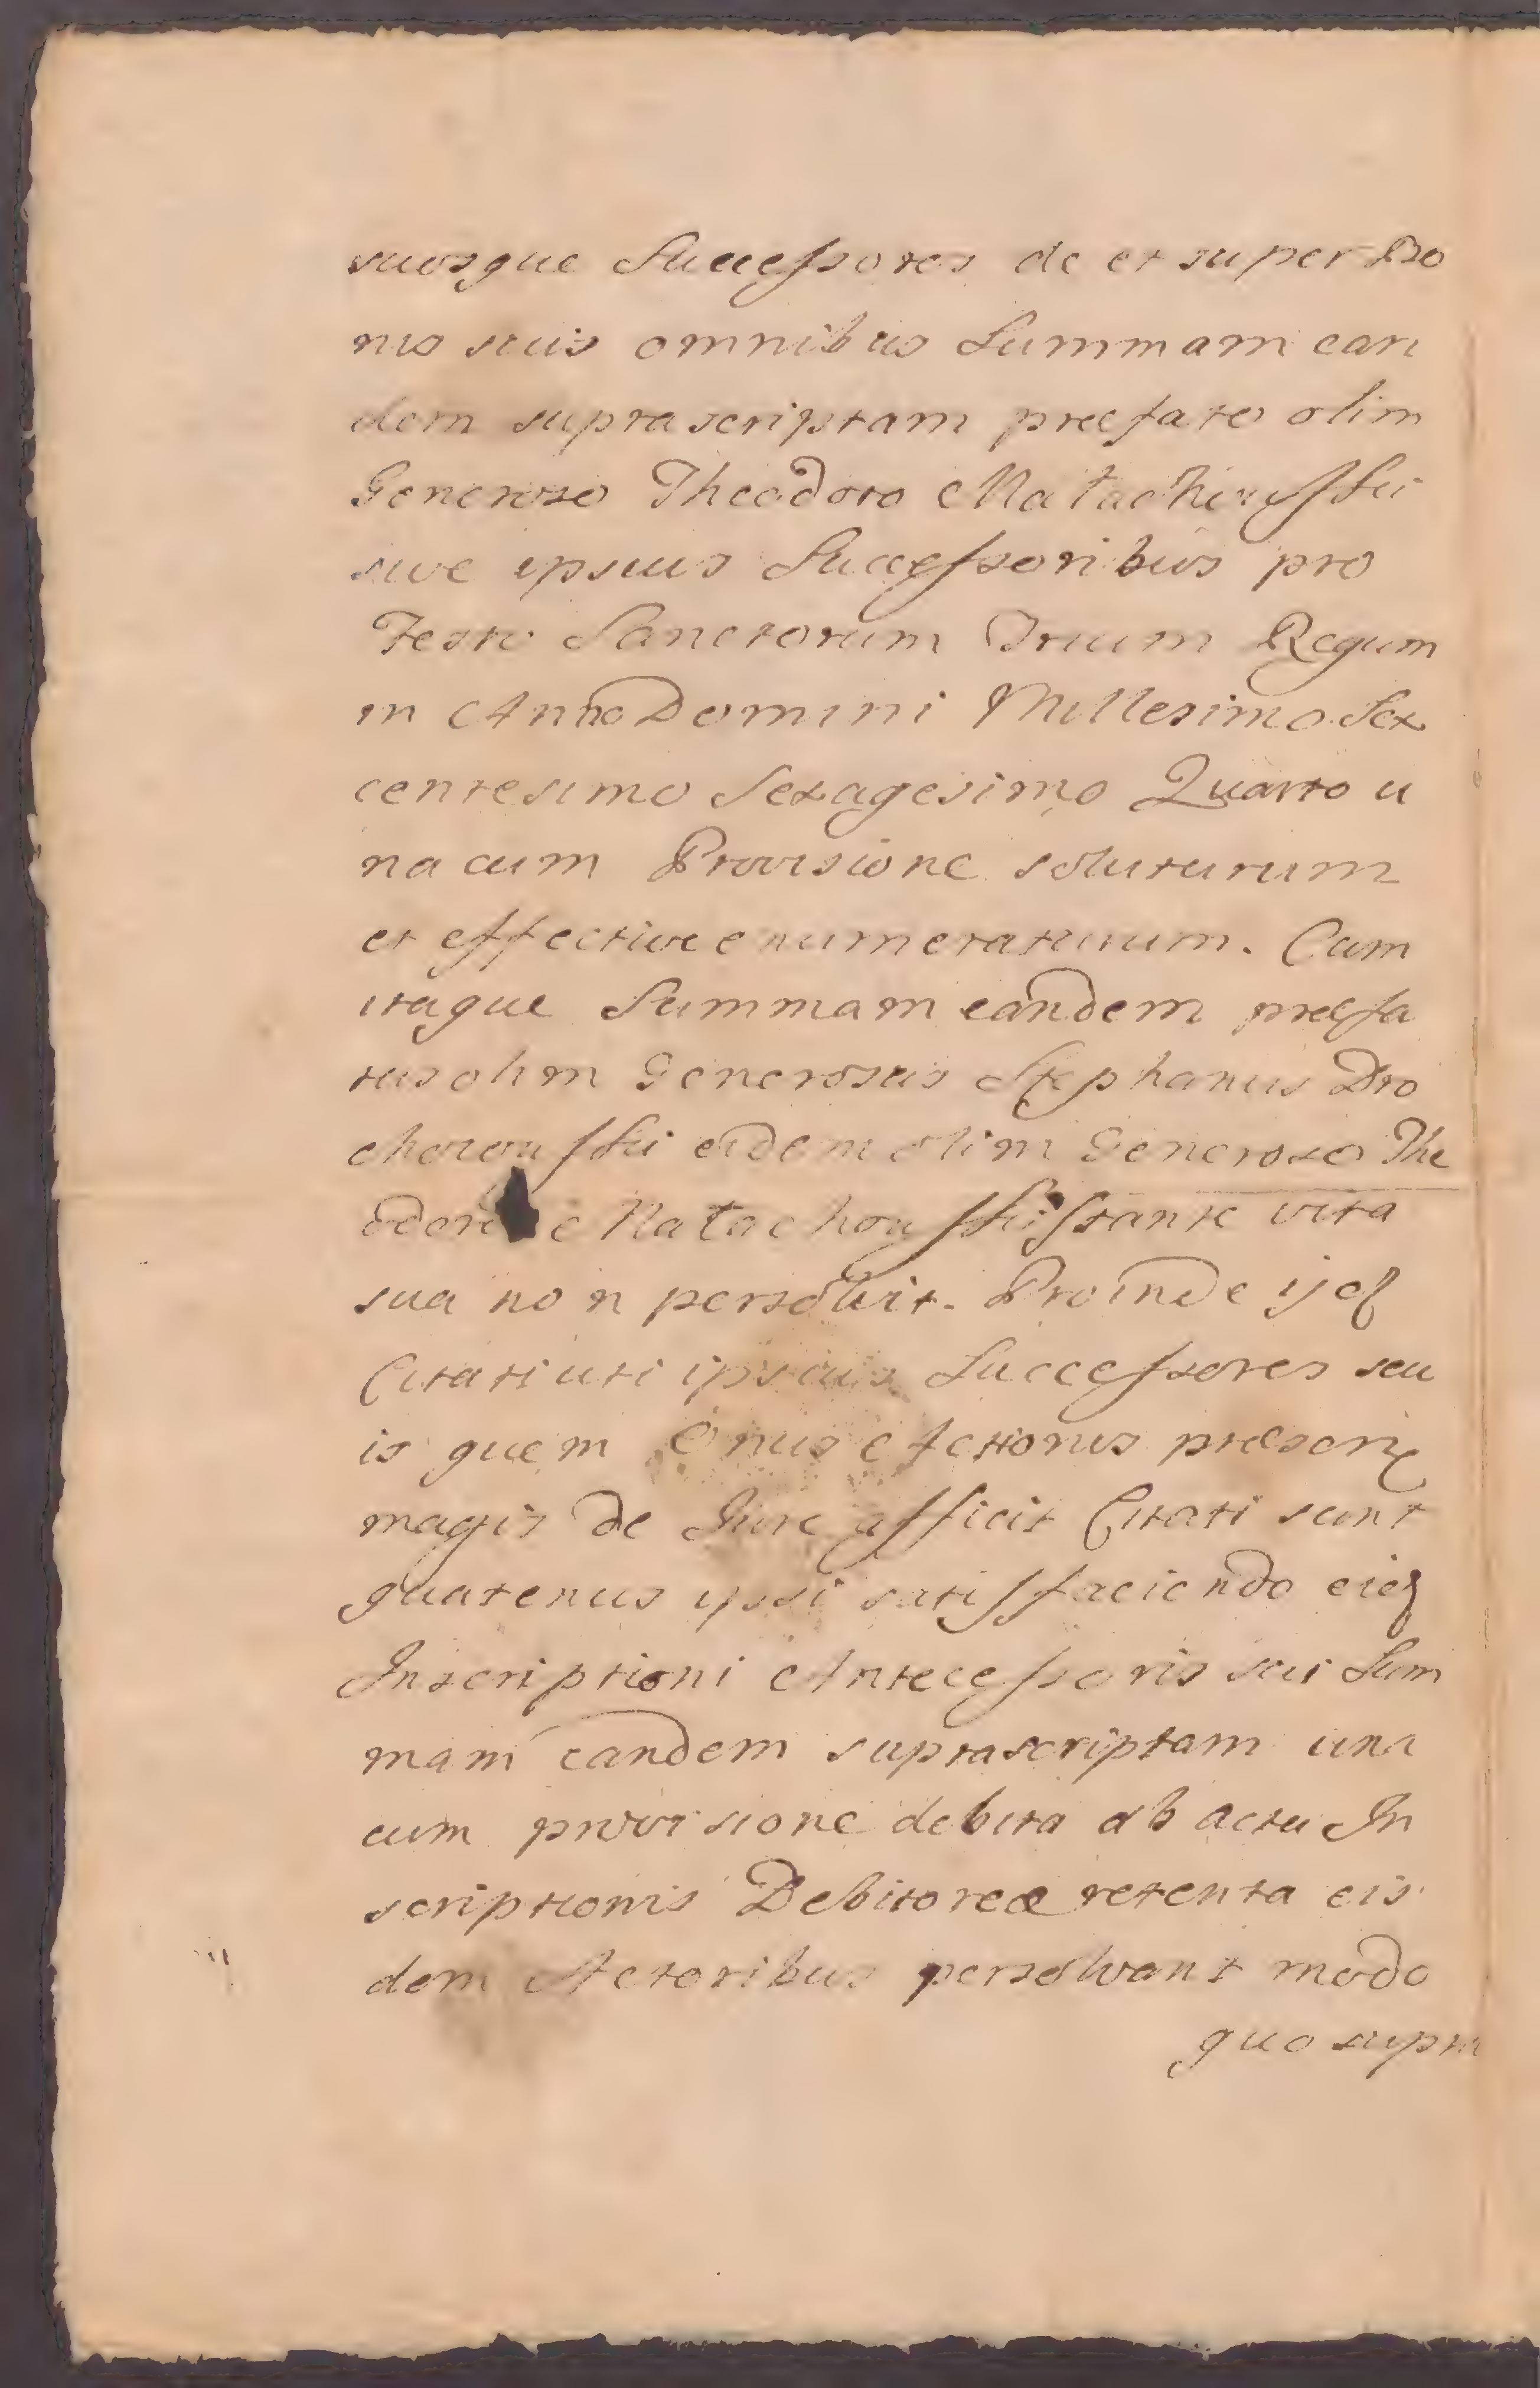 suosque Successores de et super Bo
nis suis omnibus Summam ean
dem suprascriptam præfato olim
Generoso Theodoro Matachowskii
sive ipsius Successoribus pro
Festo Sanctorum Trium Regum
in Anno Domini Millesimo Sex
centesimo Sexagesimo Quarto u
na cum Provisione soluturum
et effective enumeraturum. Cum
itaque Summam eandem præfa
tus olim Generosus Stephanus Dro
chorouskii eidem olim Generoso The
odoro Matachouskii stante vita
sua non persolvit. Proinde ijdē
Citati uti ipsius Successores seu
is quem Onus Actionis præsentis
magis de Jure afficit Citati sunt
quatenus ipsi satisfaciendo eidē
Inscriptioni Antecessoris sui Sum
mam eandem suprascriptam una
cum provisione debita ab actu In
scriptionis Debitoreæ retenta eis
dem Actoribus persolvant modo
quo supra